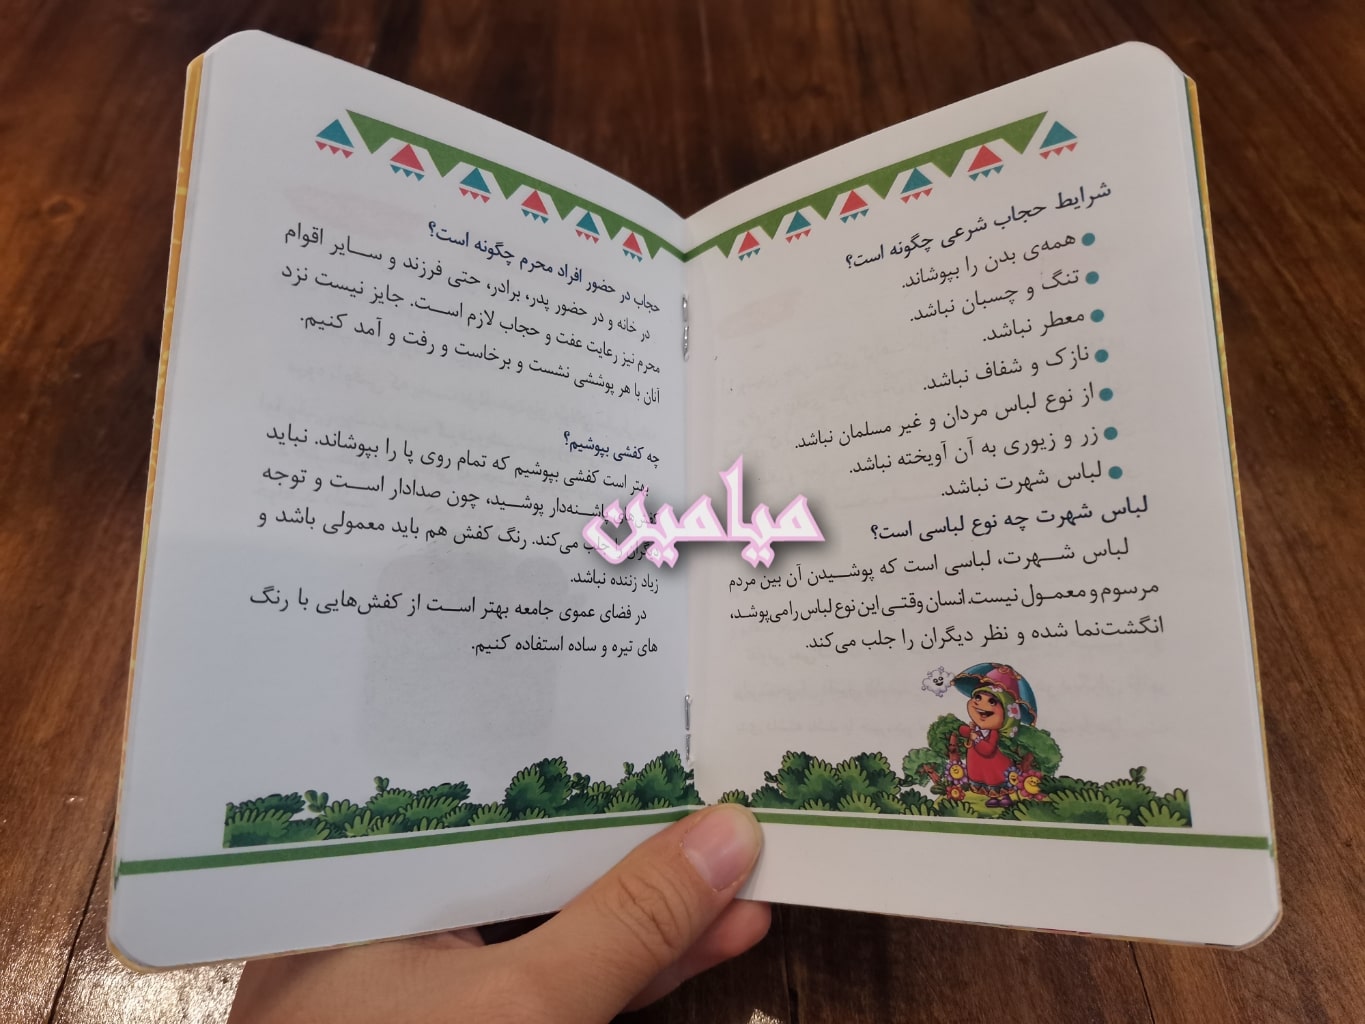 شرایط حجاب شرعی چگونه است؟
همه‌ی بدن را بپوشاند.
تنگ و چسبان نباشد.
معطر نباشد.
نازک و شفاف نباشد.
از نوع لباس مردان و غیر مسلمان نباشد.
زر و زیوری به آن آویخته نباشد.
لباس شهرت نباشد.
لباس شهرت چه نوع لباسی است؟
لباس شهرت، لباسی است که پوشیدن آن بین مردم
مرسوم و معمول نیست. انسان وقتی این نوع لباس را می‌پوشد،
انگشت‌نما شده و نظر دیگران را جلب می‌کند.
حجاب در حضور افراد محرم چگونه است؟
در خانه و در حضور پدر، برادر، حتی فرزند و سایر اقوام
محرم نیز رعایت عفت و حجاب لازم است. جایز نیست نزد
آنان با هر پوششی نشست و برخاست و رفت و آمد کنیم.
چه کفشی بپوشیم؟
بهتر است کفشی بپوشیم که تمام روی پا را بپوشاند. نباید
پوشید، چون صدادار است و توجه
جلب می‌کند. رنگ کفش هم باید معمولی باشد و
زیاد زننده نباشد.
در فضای عموی جامعه بهتر است از کفش‌هایی با رنگ
های تیره و ساده استفاده کنیم.
میامین